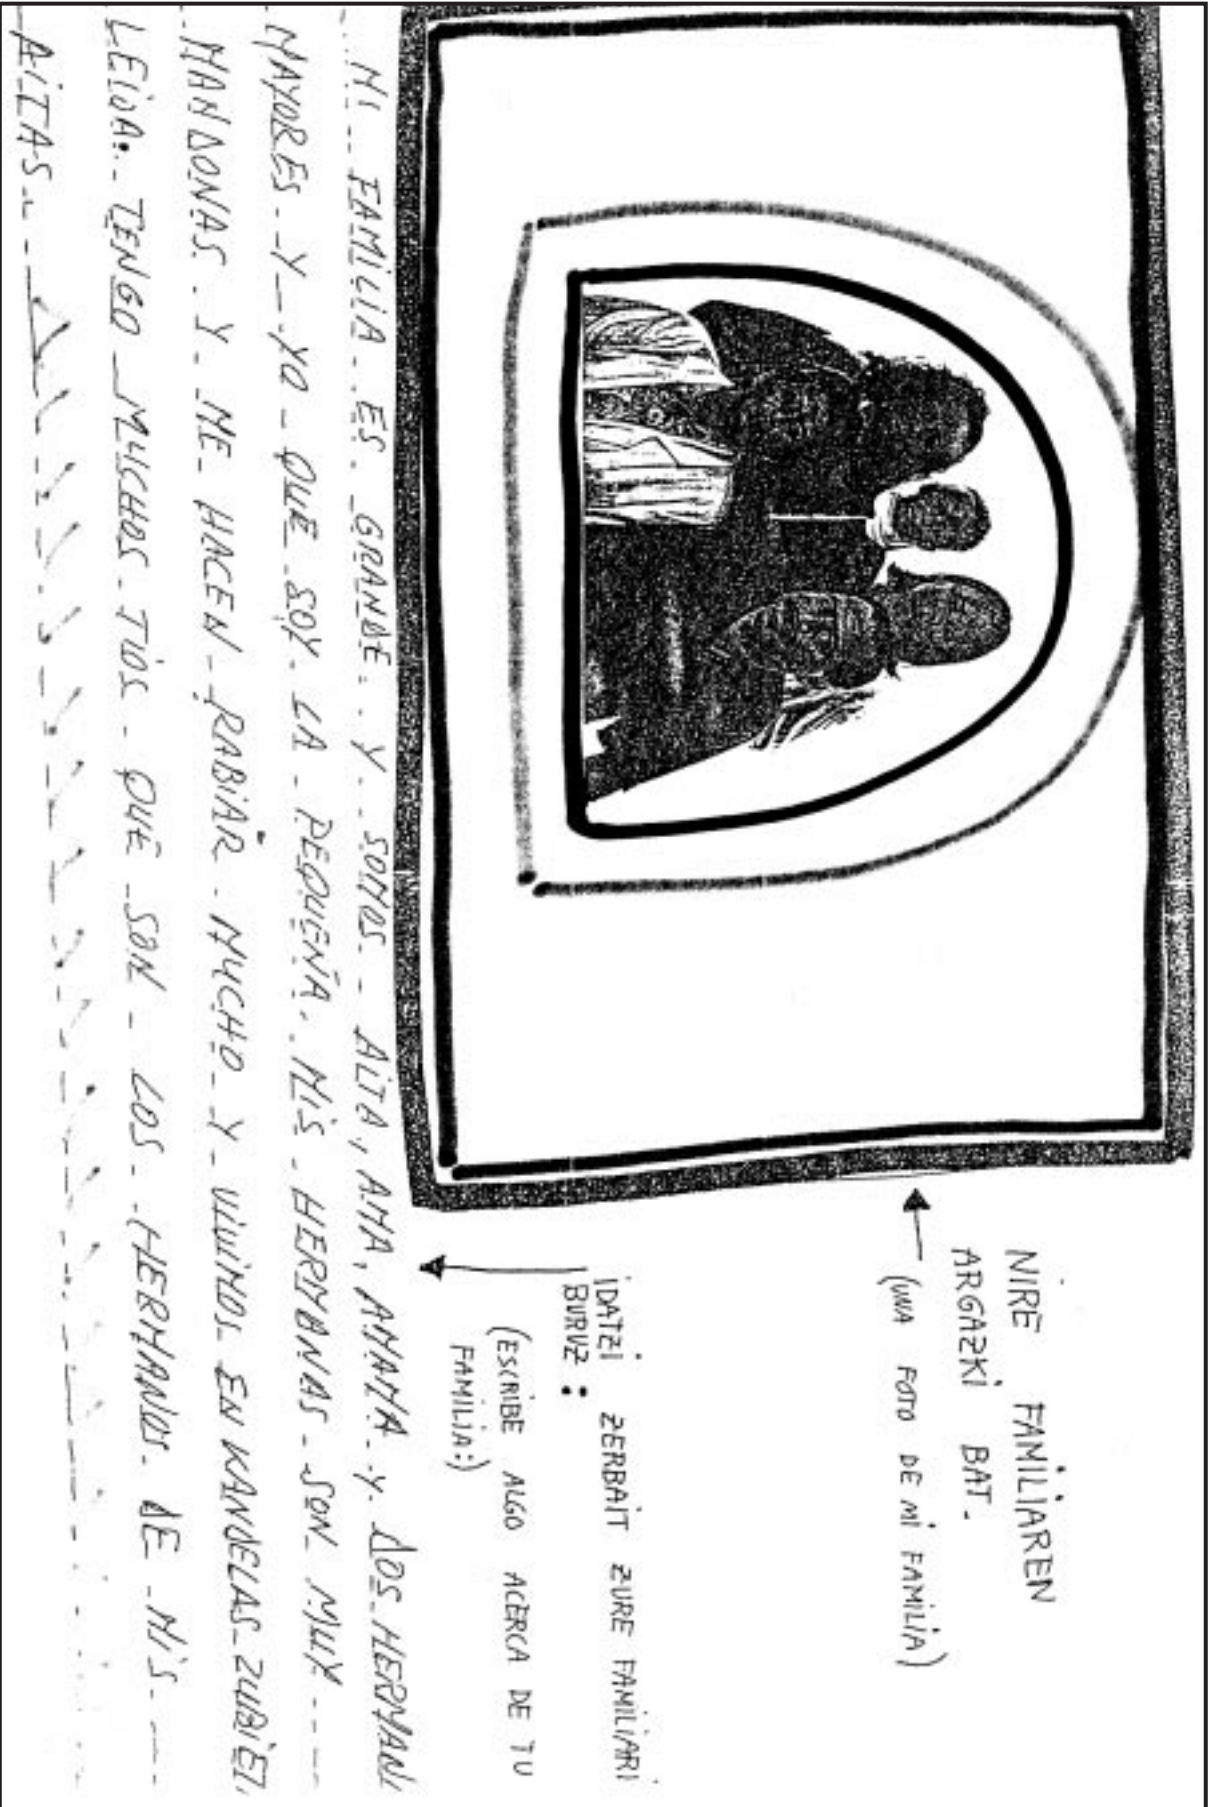 NIRE FAMILIAREN
ARGAZKI BAT.
(UNA FOTO DE MI FAMILIA)
IDATZI ZERBAIT ZURE FAMILIARI
BURUZ:
(ESCRIBE ALGO ACERCA DE TU
FAMILIA:)
MI FAMILIA ES GRANDE. Y SOMOS AITA, AMA, AMAMA Y DOS HERMAN
MAYORES Y YO QUE SOY LA PEQUEÑA. MIS HERMANAS SON MUY
MANDONAS Y ME HACEN RABIAR MUCHO Y VIVIMOS EN
LEIOA. TENGO MUCHOS TIOS QUE SON LOS HERMANOS DE MIS
AITAS.